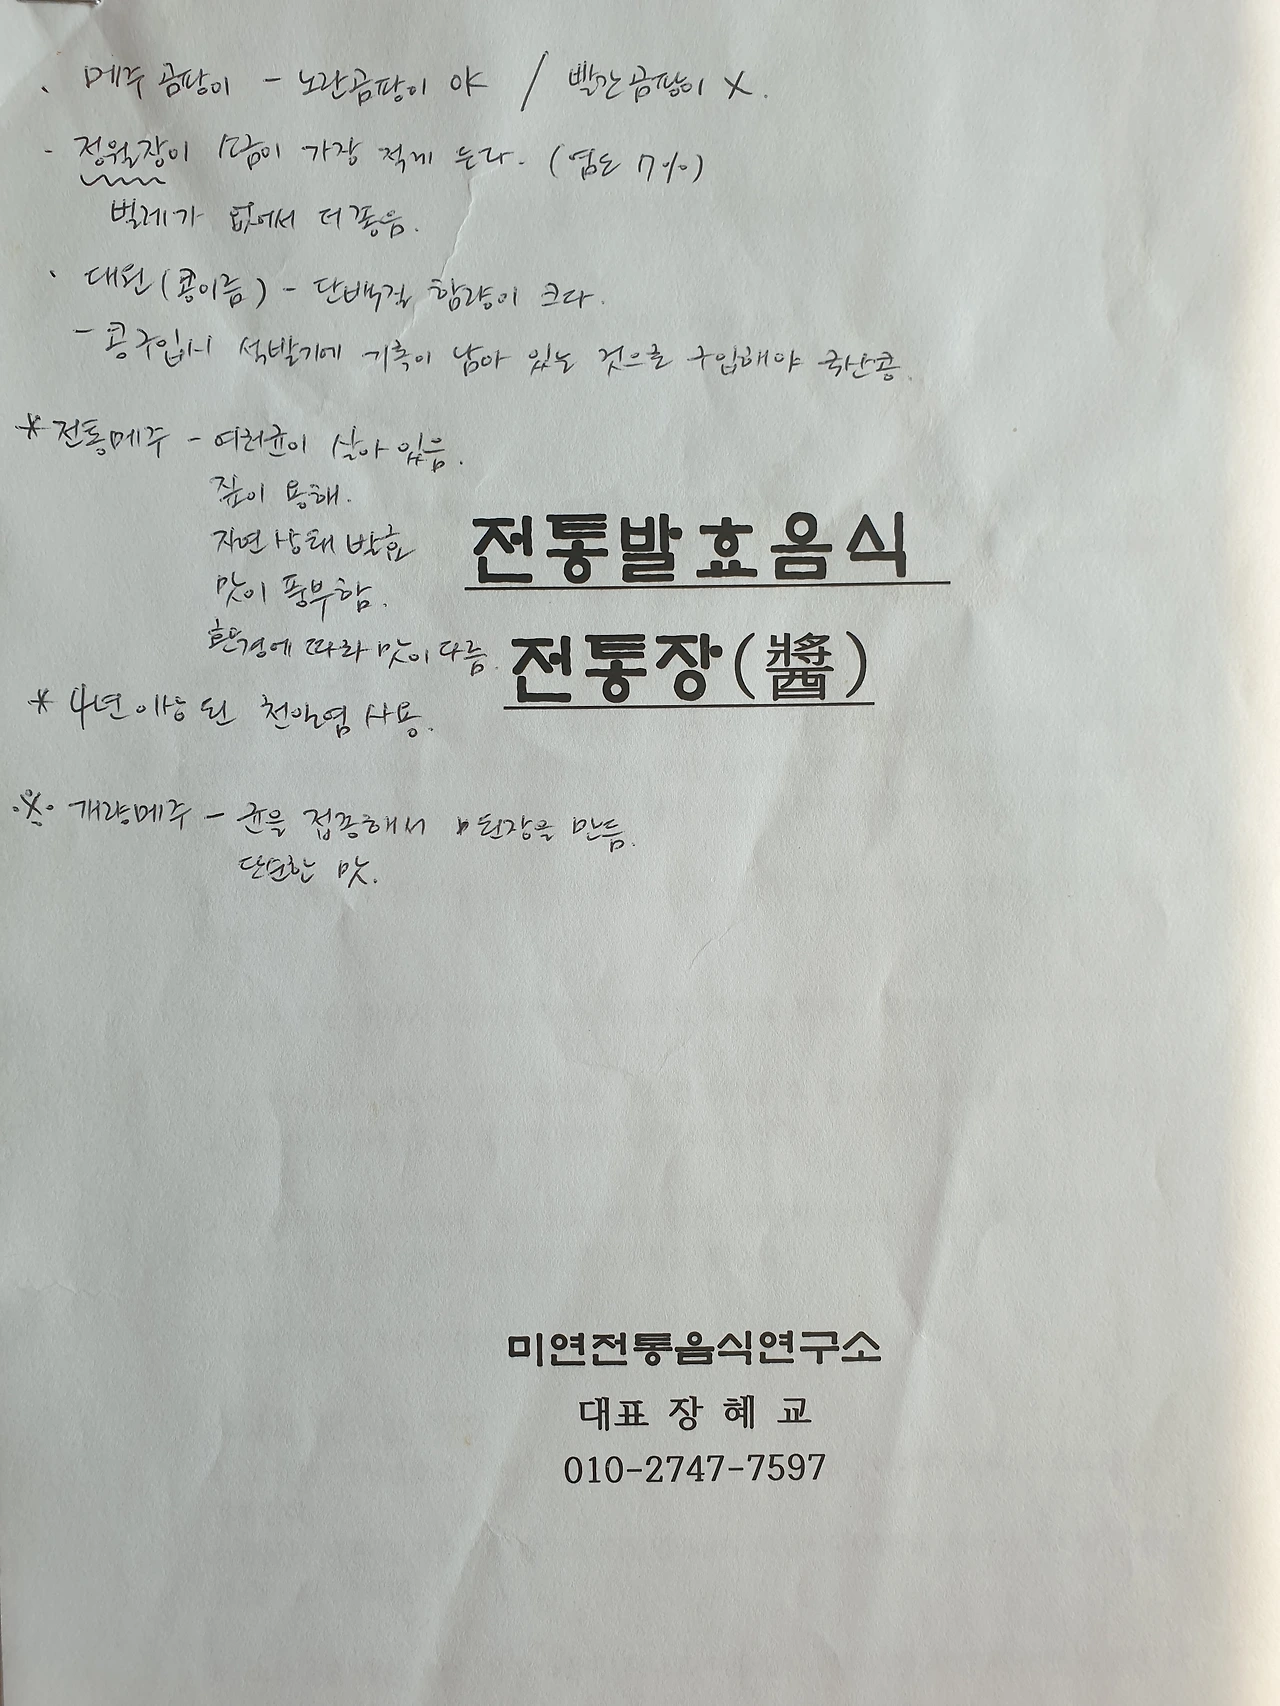 메주 곰팡이 - 노란곰팡이 야 / 빨간곰팡이 X.
- 정월장이 소금이 가장 적게 든다. (염도 17%)
벌레가 없어서 더 좋음.
대원(콩이름) - 단백질 함량이 크다.
- 콩구입시 석발기에 기록이 남아 있는 것으로 구입해야 국산콩.
* 전통메주 - 여러균이 살아 있음.
짚이 용해.
자연상태 발효
맛이 풍부함.
환경에 따라 맛이 다름.
전통발효음식
전통장(醬)
* 4년이상 된 천일염 사용.
※ 개량메주 - 균을 접종해서 된장을 만듬.
단순한 맛.
미연전통음식연구소
대표 장 혜 교
010-2747-7597